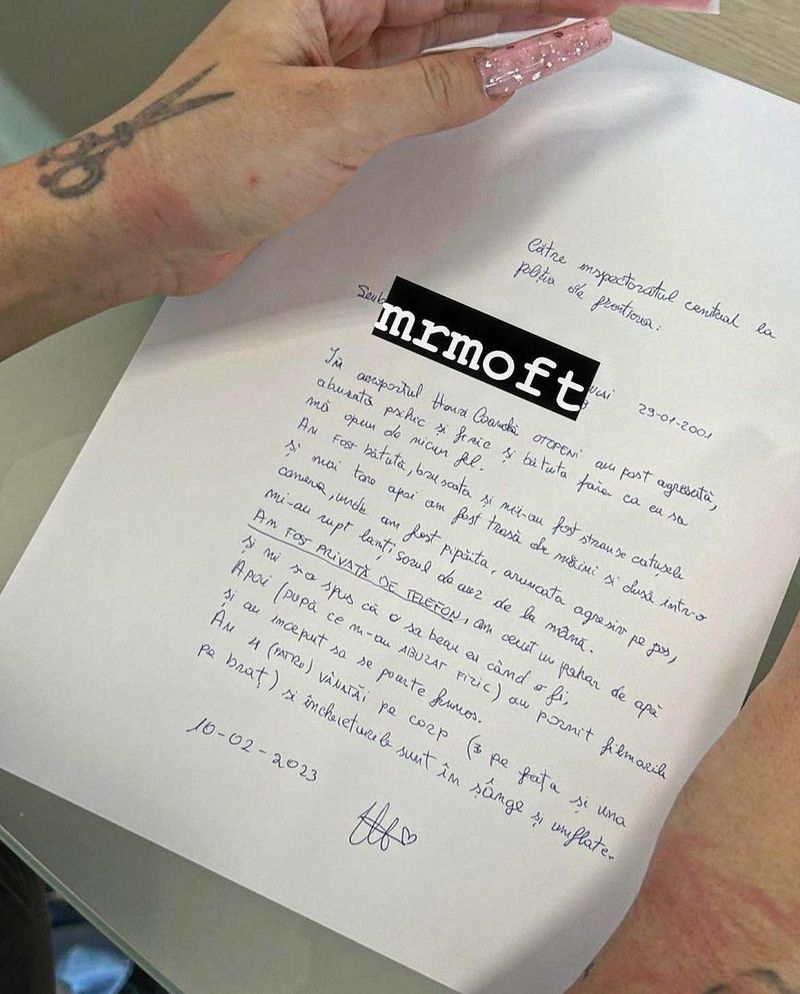 Către inspectoratul central la
poliția de frontiera:
Sub
mrmoft
29-01-2001
În aeroportul Henri Coandă OTOPENI am fost agresată,
abuzată psihic și fizic și bătuta fara ca eu sa
mă opun de niciun fel.
Am fost bătută, bruscata și mi-au fost stranse catușele
și mai tare apoi am fost trasă de mâini și dusă intr-o
camera, unde am fost pipăita, aruncata agresiv pe jos,
mi-au rupt lanțisorul de aur de la mână.
AM FOST PRIVATĂ DE TELEFON, am cerut un pahar de apă
și mi s-a spus că o sa beau eu când o fi,
Apoi (după ce m-au ABUZAT FIZIC) au pornit filmarile
și au inceput sa se poarte frumos.
Am 4 (PATRU) VÂNĂTĂI pe corp (3 pe fața și una
pe braț) si încheieturile sunt în sânge și umflate.
10-02-2023